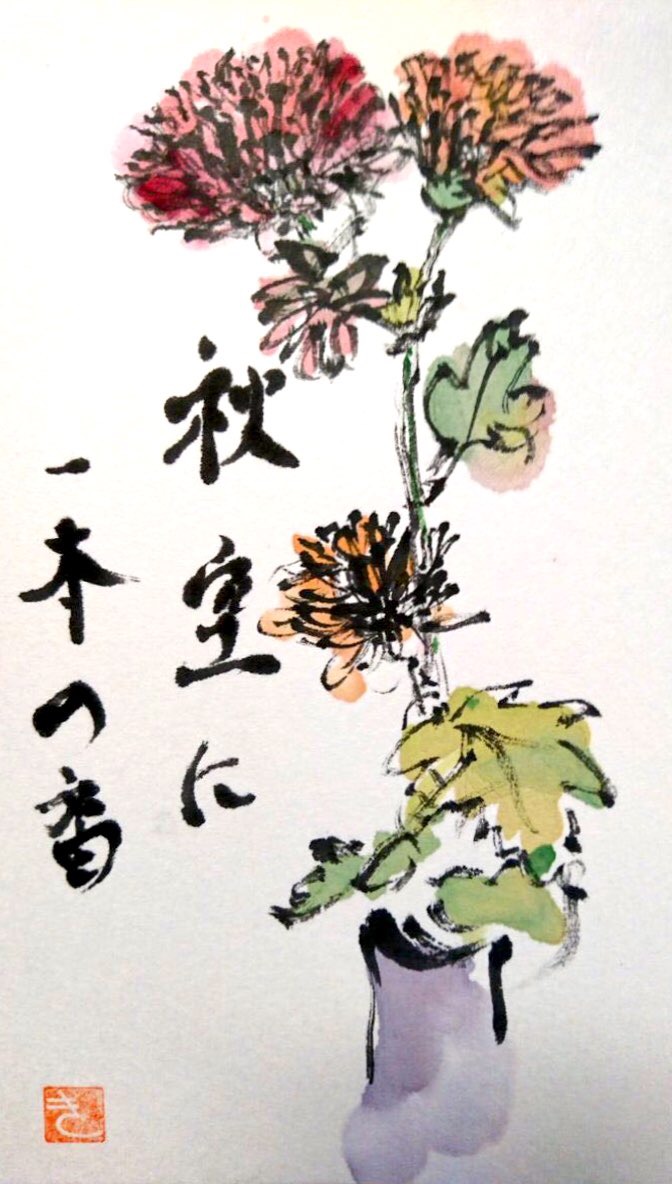 秋空に
一本の香
き